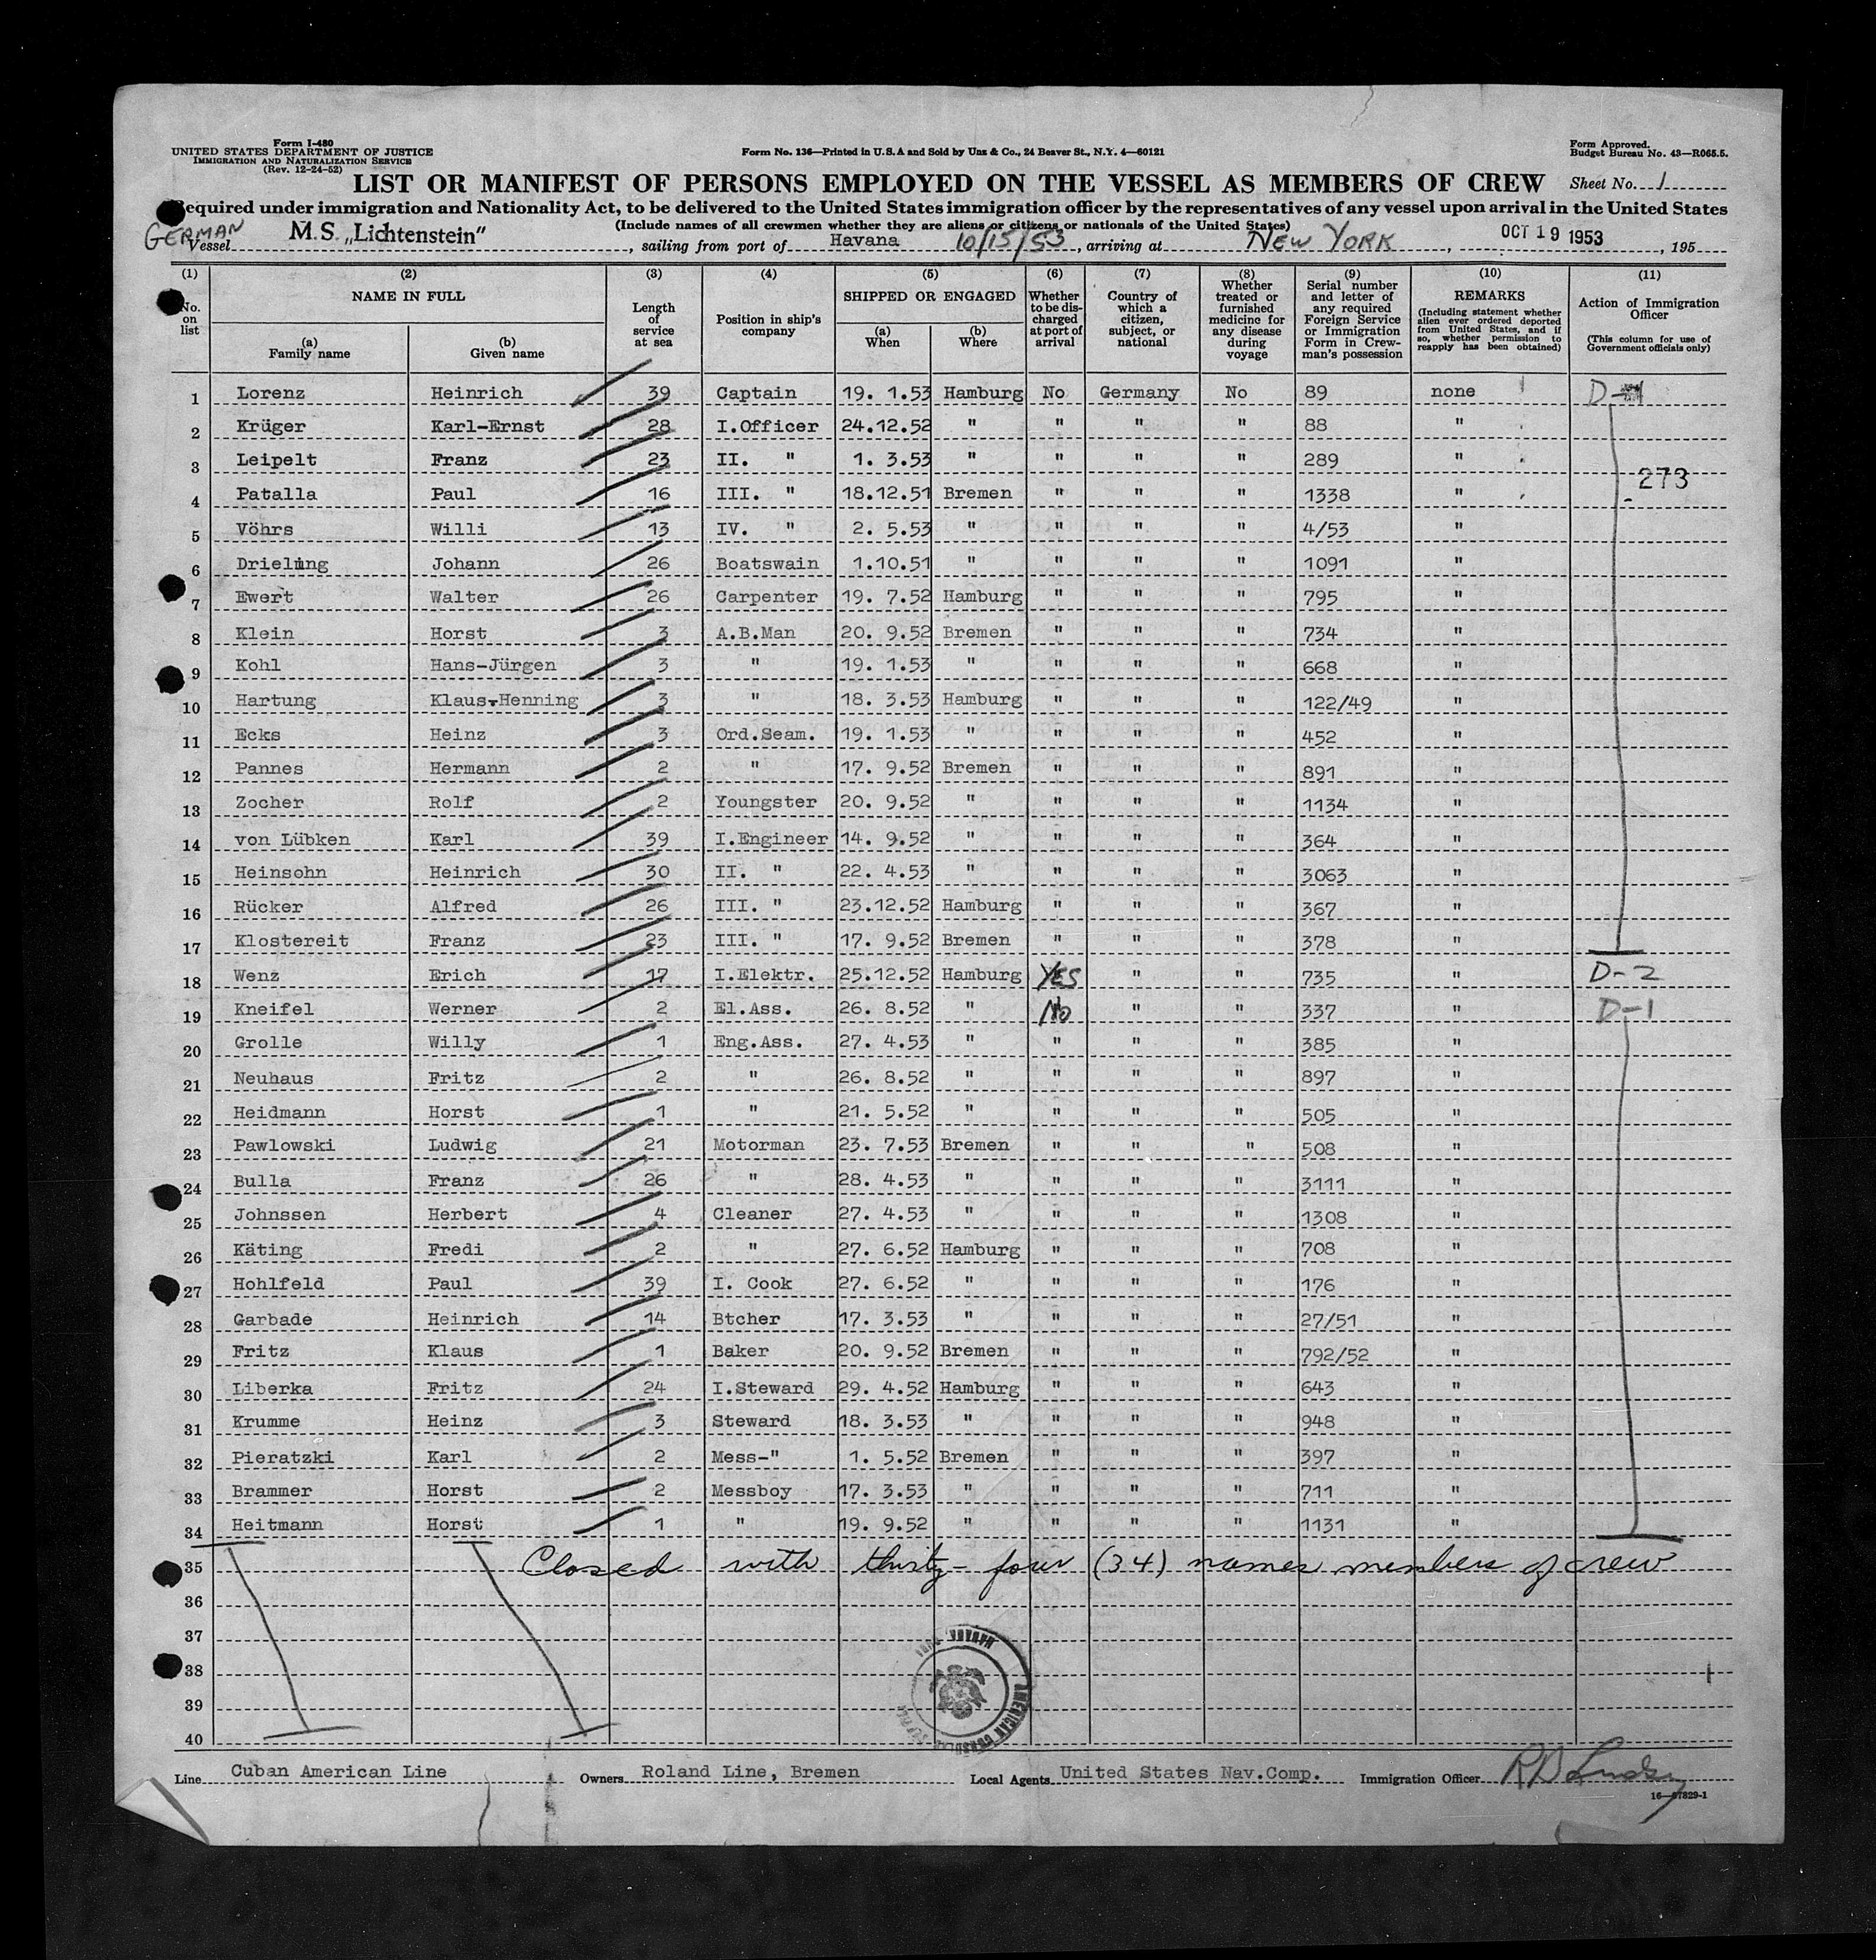 Form I-480
UNITED STATES DEPARTMENT OF JUSTICE
IMMIGRATION AND NATURALIZATION SERVICE
(Rev. 12-24-52)
Form No. 136—Printed in U.S.A and Sold by Unz & Co., 24 Beaver St., N.Y. 4—60121
Form Approved.
Budget Bureau No. 43—R065.5.
LIST OR MANIFEST OF PERSONS EMPLOYED ON THE VESSEL AS MEMBERS OF CREW Sheet No. 1
Required under immigration and Nationality Act, to be delivered to the United States immigration officer by the representatives of any vessel upon arrival in the United States
(Include names of all crewmen whether they are aliens or citizens or nationals of the United States)
GERMAN
Vessel M.S. „Lichtenstein“, sailing from port of Havana 10/15/53, arriving at NEW YORK, OCT 19 1953, 195
(1) (2) (3) (4) (5) (6) (7) (8) (9) (10) (11)
No. on list
NAME IN FULL
(a) Family name
(b) Given name
Length of service at sea
Position in ship's company
SHIPPED OR ENGAGED
(a) When
(b) Where
Whether to be discharged at port of arrival
Country of which a citizen, subject, or national
Whether treated or furnished medicine for any disease during voyage
Serial number and letter of any required Foreign Service or Immigration Form in Crewman's possession
REMARKS
(Including statement whether alien ever ordered deported from United States, and if so, whether permission to reapply has been obtained)
Action of Immigration Officer
(This column for use of Government officials only)
1 Lorenz Heinrich 39 Captain 19. 1.53 Hamburg No Germany No 89 none D-1
2 Krüger Karl-Ernst 28 I.Officer 24.12.52 " " " " 88 "
3 Leipelt Franz 23 II. " 1. 3.53 " " " " 289 "
273
4 Patalla Paul 16 III. " 18.12.51 Bremen " " " 1338 "
5 Vöhrs Willi 13 IV. " 2. 5.53 " " " " 4/53 "
6 Drieling Johann 26 Boatswain 1.10.51 " " " " 1091 "
7 Ewert Walter 26 Carpenter 19. 7.52 Hamburg " " " 795 "
8 Klein Horst 3 A.B.Man 20. 9.52 Bremen " " " 734 "
9 Kohl Hans-Jürgen 3 " 19. 1.53 " " " " 668 "
10 Hartung Klaus-Henning 3 " 18. 3.53 Hamburg " " " 122/49 "
11 Ecks Heinz 3 Ord.Seam. 19. 1.53 " " " " 452 "
12 Pannes Hermann 2 " 17. 9.52 Bremen " " " 891 "
13 Zocher Rolf 2 Youngster 20. 9.52 " " " " 1134 "
14 von Lübken Karl 39 I.Engineer 14. 9.52 " " " " 364 "
15 Heinsohn Heinrich 30 II. " 22. 4.53 " " " " 3063 "
16 Rücker Alfred 26 III. " 23.12.52 Hamburg " " " 367 "
17 Klostereit Franz 23 III. " 17. 9.52 Bremen " " " 378 "
18 Wenz Erich 17 I.Elektr. 25.12.52 Hamburg YES " " 735 " D-2
19 Kneifel Werner 2 El.Ass. 26. 8.52 " No " " 337 " D-1
20 Grolle Willy 1 Eng.Ass. 27. 4.53 " " " " 385 "
21 Neuhaus Fritz 2 " 26. 8.52 " " " " 897 "
22 Heidmann Horst 1 " 21. 5.52 " " " " 505 "
23 Pawlowski Ludwig 21 Motorman 23. 7.53 Bremen " " " 508 "
24 Bulla Franz 26 " 28. 4.53 " " " " 3111 "
25 Johnssen Herbert 4 Cleaner 27. 4.53 " " " " 1308 "
26 Käting Fredi 2 " 27. 6.52 Hamburg " " " 708 "
27 Hohlfeld Paul 39 I. Cook 27. 6.52 " " " " 176 "
28 Garbade Heinrich 14 Btcher 17. 3.53 " " " " 27/51 "
29 Fritz Klaus 1 Baker 20. 9.52 Bremen " " " 792/52 "
30 Liberka Fritz 24 I.Steward 29. 4.52 Hamburg " " " 643 "
31 Krumme Heinz 3 Steward 18. 3.53 " " " " 948 "
32 Pieratzki Karl 2 Mess-" 1. 5.52 Bremen " " " 397 "
33 Brammer Horst 2 Messboy 17. 3.53 " " " " 711 "
34 Heitmann Horst 1 " 19. 9.52 " " " " 1131 "
35 Closed with thirty-four (34) names members of crew
36
37
38
39
40
HAVANA, CUBA
AMERICAN CONSULAR
Line Cuban American Line Owners Roland Line, Bremen Local Agents United States Nav.Comp. Immigration Officer R D Lindsy
16—67829-1